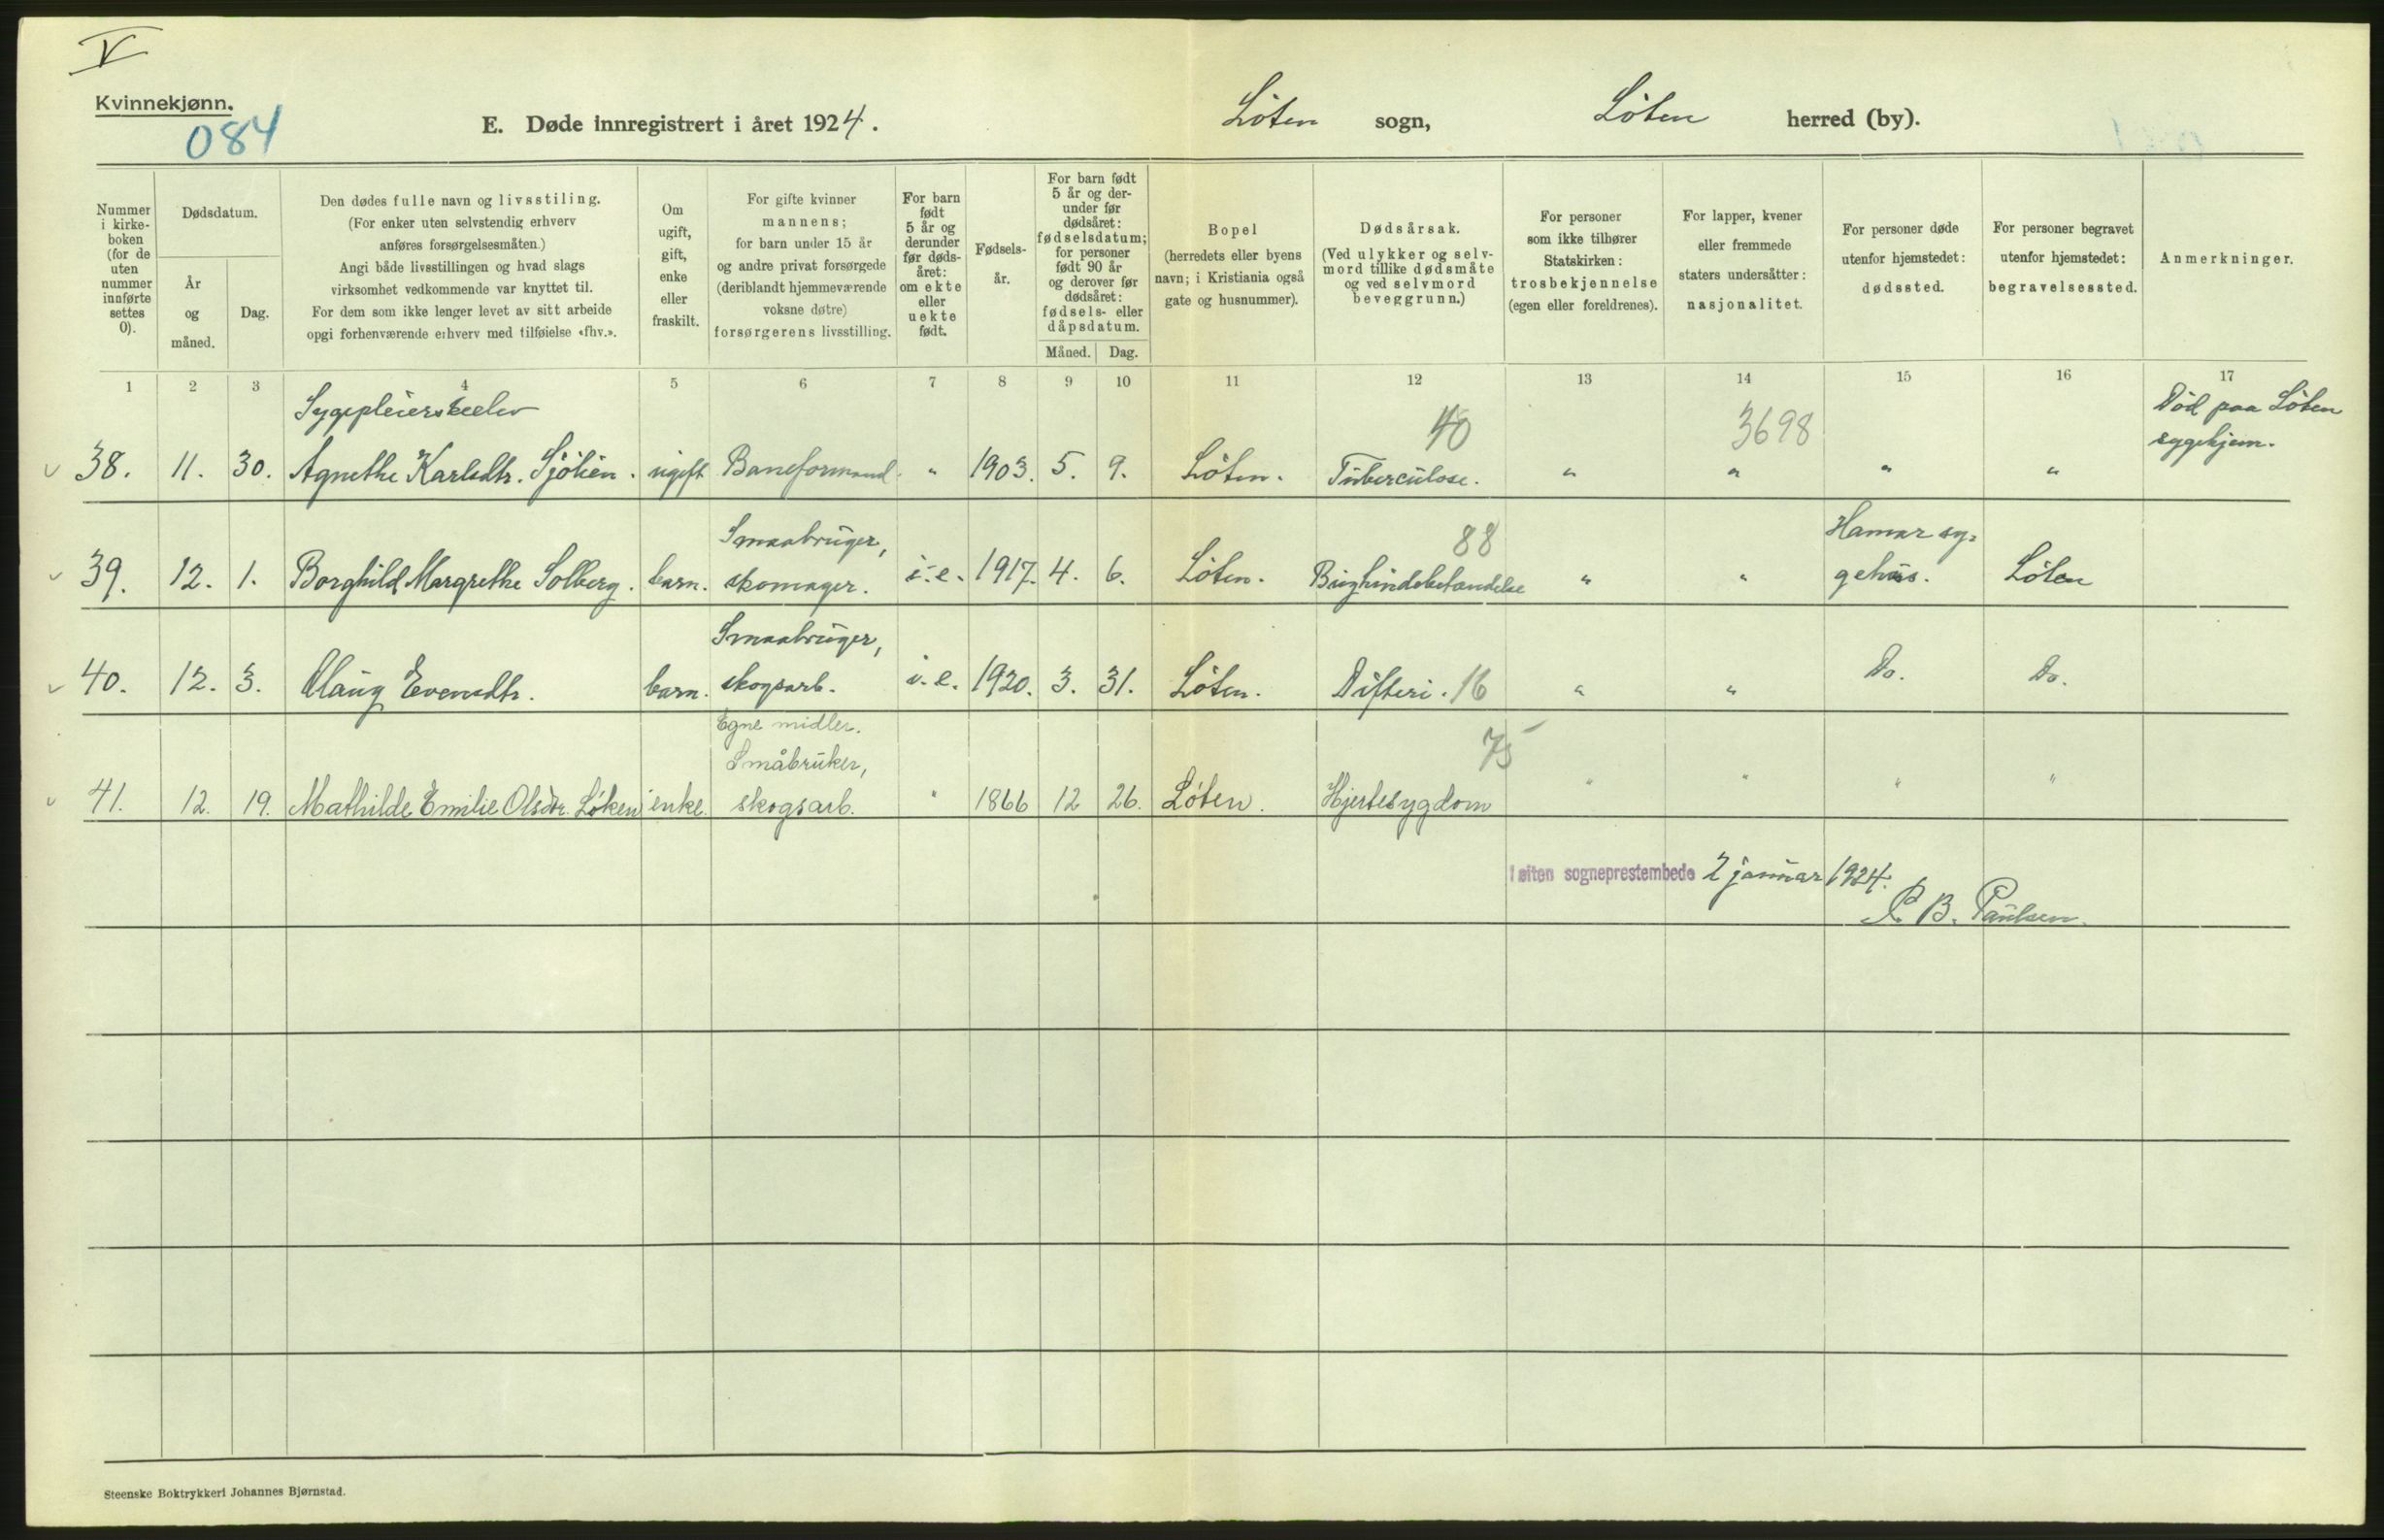 V
Kvinnekjønn.
084
E. Døde innregistrert i året 1924.
Löten sogn,
Löten herred (by).
Nummer i kirke-boken (for de uten nummer innførte settes 0).
Dødsdatum.
År og måned.
Dag.
Den dødes fulle navn og livsstiling.
(For enker uten selvstendig erhverv
anføres forsørgelsesmåten.)
Angi både livsstillingen og hvad slags
virksomhet vedkommende var knyttet til.
For dem som ikke lenger levet av sitt arbeide
opgi forhenværende erhverv med tilføielse «fhv.».
Om ugift, gift, enke eller fraskilt.
For gifte kvinner
mannens;
for barn under 15 år
og andre privat forsørgede
(deriblandt hjemmeværende
voksne døtre)
forsørgerens livsstilling.
For barn født 5 år og derunder før døds-året: om ekte eller uekte født.
Fødsels-år.
For barn født 5 år og der-under før dødsåret: fødselsdatum; for personer født 90 år og derover før dødsåret: fødsels- eller dåpsdatum.
Måned.
Dag.
Bopel
(herredets eller byens
navn; i Kristiania også
gate og husnummer).
Dødsårsak.
(Ved ulykker og selv-
mord tillike dødsmåte
og ved selvmord
beveggrunn.)
For personer
som ikke tilhører
Statskirken:
trosbekjennelse
(egen eller foreldrenes).
For lapper, kvener
eller fremmede
staters undersåtter:
nasjonalitet.
For personer døde
utenfor hjemstedet:
dødssted.
For personer begravet
utenfor hjemstedet:
begravelsessted.
Anmerkninger.
1 2 3 4 5 6 7 8 9 10 11 12 13 14 15 16 17
Sygepleierskeelev 40 3698 Död paa Löten
sygehjem.
38. 11. 30. Agnethe Karlsdtr. Sjölien. ugift Baneformand. " 1903. 5. 9. Löten. Tuberculose. " " " "
Smaabruger, 88 Hamar sy-
39. 12. 1. Borghild Margrethe Solberg. barn. skomager. i.e. 1917. 4. 6. Löten. Bughindebetændelse " " gehus. Löten
Smaabruger,
40. 12. 3. Olaug Evensdtr. barn. skogsarb. i.e. 1920. 3. 31. Löten. Difteri. 16 " " Do. Do.
Egne midler.
Småbruker, 75
41. 12. 19. Mathilde Emilie Olsdtr. Løken enke. skogsarb. " 1866 12 26. Løten. Hjertesygdom " " " "
Løiten sogneprestembede 2 januar 1924.
P. B. Paulsen.
Steenske Boktrykkeri Johannes Bjørnstad.